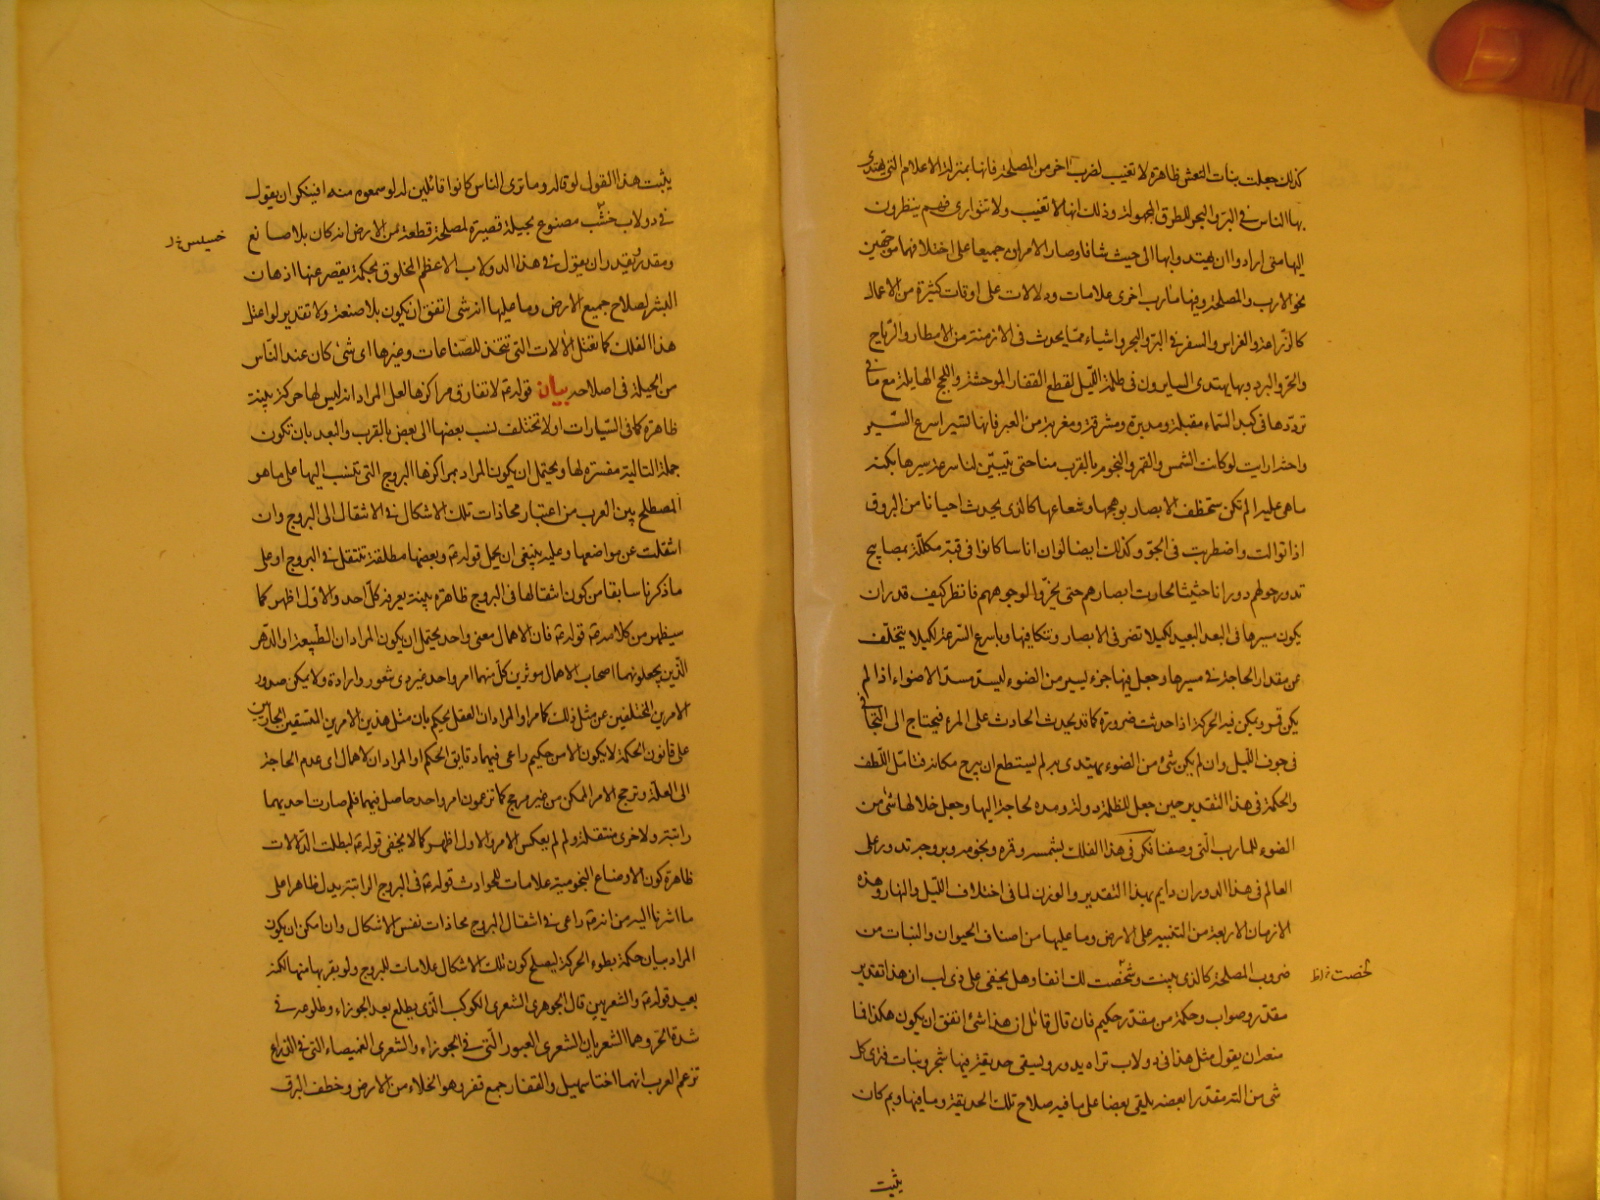 كذلك جعلت بنات النعش ظاهرة لا تغيب لضرب اخر من المصلحة فانها بمنزلة الاعلام التي يهتدى
بها الناس في البر والبحر للطرق المجهولة وذلك انها لا تغيب ولا تتوارى فهم ينظرون
اليها متى ارادوا ان يهتدوا بها الى حيث شاؤا وصار الامران جميعا على اختلافهما موجهين
نحو الارب والمصلحة وفيها مارب اخرى علامات ودلالات على اوقات كثيرة من الاعمال
كالزراعة والغراس والسفر في البر والبحر واشياء مما يحدث في الازمنة من الامطار والرياح
والحر والبرد وبها يهتدى السايرون في ظلمة الليل لقطع القفار الموحشة واللجج الهايلة مع ما في
ترددها في كبد السماء مقبلة ومدبرة ومشرقة ومغربة من العبر فانها تسير اسرع السير
واحثه ارايت لو كانت الشمس والقمر والنجوم بالقرب منا حتى يتبين لنا سرعة سيرها بكنه
ما هي عليه الم تكن ستخطف الابصار بوهجها وشعاعها كالذى يحدث احيانا من البروق
اذا توالت واضطربت في الجو وكذلك ايضا لو ان اناسا كانوا في قبة مكللة بمصابيح
تدور حولهم دورانا حثيثا لحارت ابصارهم حتى يخروا لوجوههم فانظر كيف قدر ان
يكون مسيرها في البعد البعيد لكيلا تضر في الابصار وتنكا فيها وباسرع السرعة لكيلا يتخلف
عن مقدار الحاجة في مسيرها وجعل فيها جزء يسير من الضوء ليسد مسد الاضواء اذا لم
يكن قمر ويمكن فيه الحركة اذا حدثت ضرورة كما قد يحدث الحادث على المرء فيحتاج الى التجافي
في جوف الليل وان لم يكن شئ من الضوء يهتدى به لم يستطع ان يبرح مكانه فتامل اللطف
والحكمة في هذا التقدير حين جعل للظلمة دولة ومدة لحاجة اليها وجعل خلالها شئ من
الضوء للمارب التي وصفنا فكر في هذا الفلك بشمسه وقمره ونجومه وبروجه تدور على
العالم في هذا الدوران دايم بهذا التقدير والوزن لما في اختلاف الليل والنهار وهذه
الازمان الاربعة من التنبيه على الارض وما عليها من اصناف الحيوان والنبات من
ضروب المصلحة كالذى بينت وشخصت لك انفا وهل يخفى على ذى لب ان هذا تقدير
مقدر وصواب وحكمة من مقدر حكيم فان قال قائل ان هذا شئ اتفق ان يكون هكذا فما
منعه ان يقول مثل هذا في دولاب تراه يدور ويسقى حديقة فيها شجر ونبات فترى كل
شئ من الته مقدرا بعضه يلقى بعضا على ما فيه صلاح تلك الحديقة وما فيها وبم كان
يثبت
يثبت هذا القول لو قاله وما ترى الناس كانوا قائلين له لو سمعوه منه افينكر ان يقول
في دولاب خشب مصنوع بحيلة قصيرة لمصلحة قطعة من الارض انه كان بلا صانع
ومقدر ويقدر ان يقول في هذا الدولاب الاعظم المخلوق بحكمة يقصر عنها اذهان
البشر لصلاح جميع الارض وما عليها انه شئ اتفق ان يكون بلا صنعة ولا تقدير لو اعتل
هذا الفلك كما تعتل الالات التي تتخذ للصناعات وغيرها اى شئ كان عند الناس
من الحيلة في اصلاحه بيان قوله ع لا تفارق مراكزها لعل المراد انه ليس لها حركة بينة
ظاهرة كما في السيارات او لا تختلف نسب بعضها الى بعض بالقرب والبعد بان تكون
جملة التالية مفسرة لها ويحتمل ان يكون المراد بمراكزها البروج التي تنسب اليها على ما هو
المصطلح بين العرب من اعتبار محاذات تلك الاشكال في الانتقال الى البروج وان
انتقلت عن مواضعها وعليه ينبغي ان يحمل قوله ع وبعضها مطلقة تنتقل في البروج او على
ما ذكرنا سابقا من كون انتقالها في البروج ظاهرة بينة يعرفه كل احد والاول اظهر كما
سيظهر من كلامه ع قوله ع فان الاهمال معنى واحد يحتمل ان يكون المراد ان الطبيعة او الدهر
الذين يجعلونهما اصحاب الاهمال موثرين كل منهما امر واحد غير ذى شعور وارادة ولا يمكن صدور
الامرين المختلفين عن مثل ذلك كما مر او المراد ان العقل يحكم بان مثل هذين الامرين المتسقين الجاريين
على قانون الحكمة لا يكون الا من حكيم راعى فيهما دقايق الحكم او المراد ان الاهمال اى عدم الحاجة
الى العلة وترجح الامر الممكن من غير مرجح كما تزعمون امر واحد حاصل فيهما فلم صارت احديهما
راتبة والاخرى منتقلة ولم لم يعكس الامر والاول اظهر كما لا يخفى قوله ع لبطلت الدلالات
ظاهره كون الاوضاع النجومية علامات للحوادث قوله ع في البروج الراتبة يدل ظاهرا على
ما اشرنا اليه من انه ع راعى في انتقال البروج محاذات نفس الاشكال وان امكن ان يكون
المراد بيان حكمة بطوء الحركة ليصلح كون تلك الاشكال علامات للبروج ولو بقربها منها لكنه
بعيد قوله ع والشعريين قال الجوهرى الشعرى الكوكب الذى يطلع بعد الجوزاء وطلوعه في
شدة الحر وهما الشعريان الشعرى العبور التي في الجوزاء والشعرى الغميصاء التي في الذراع
تزعم العرب انهما اختا سهيل والقفار جمع قفر وهو الخلاء من الارض وخطف البرق